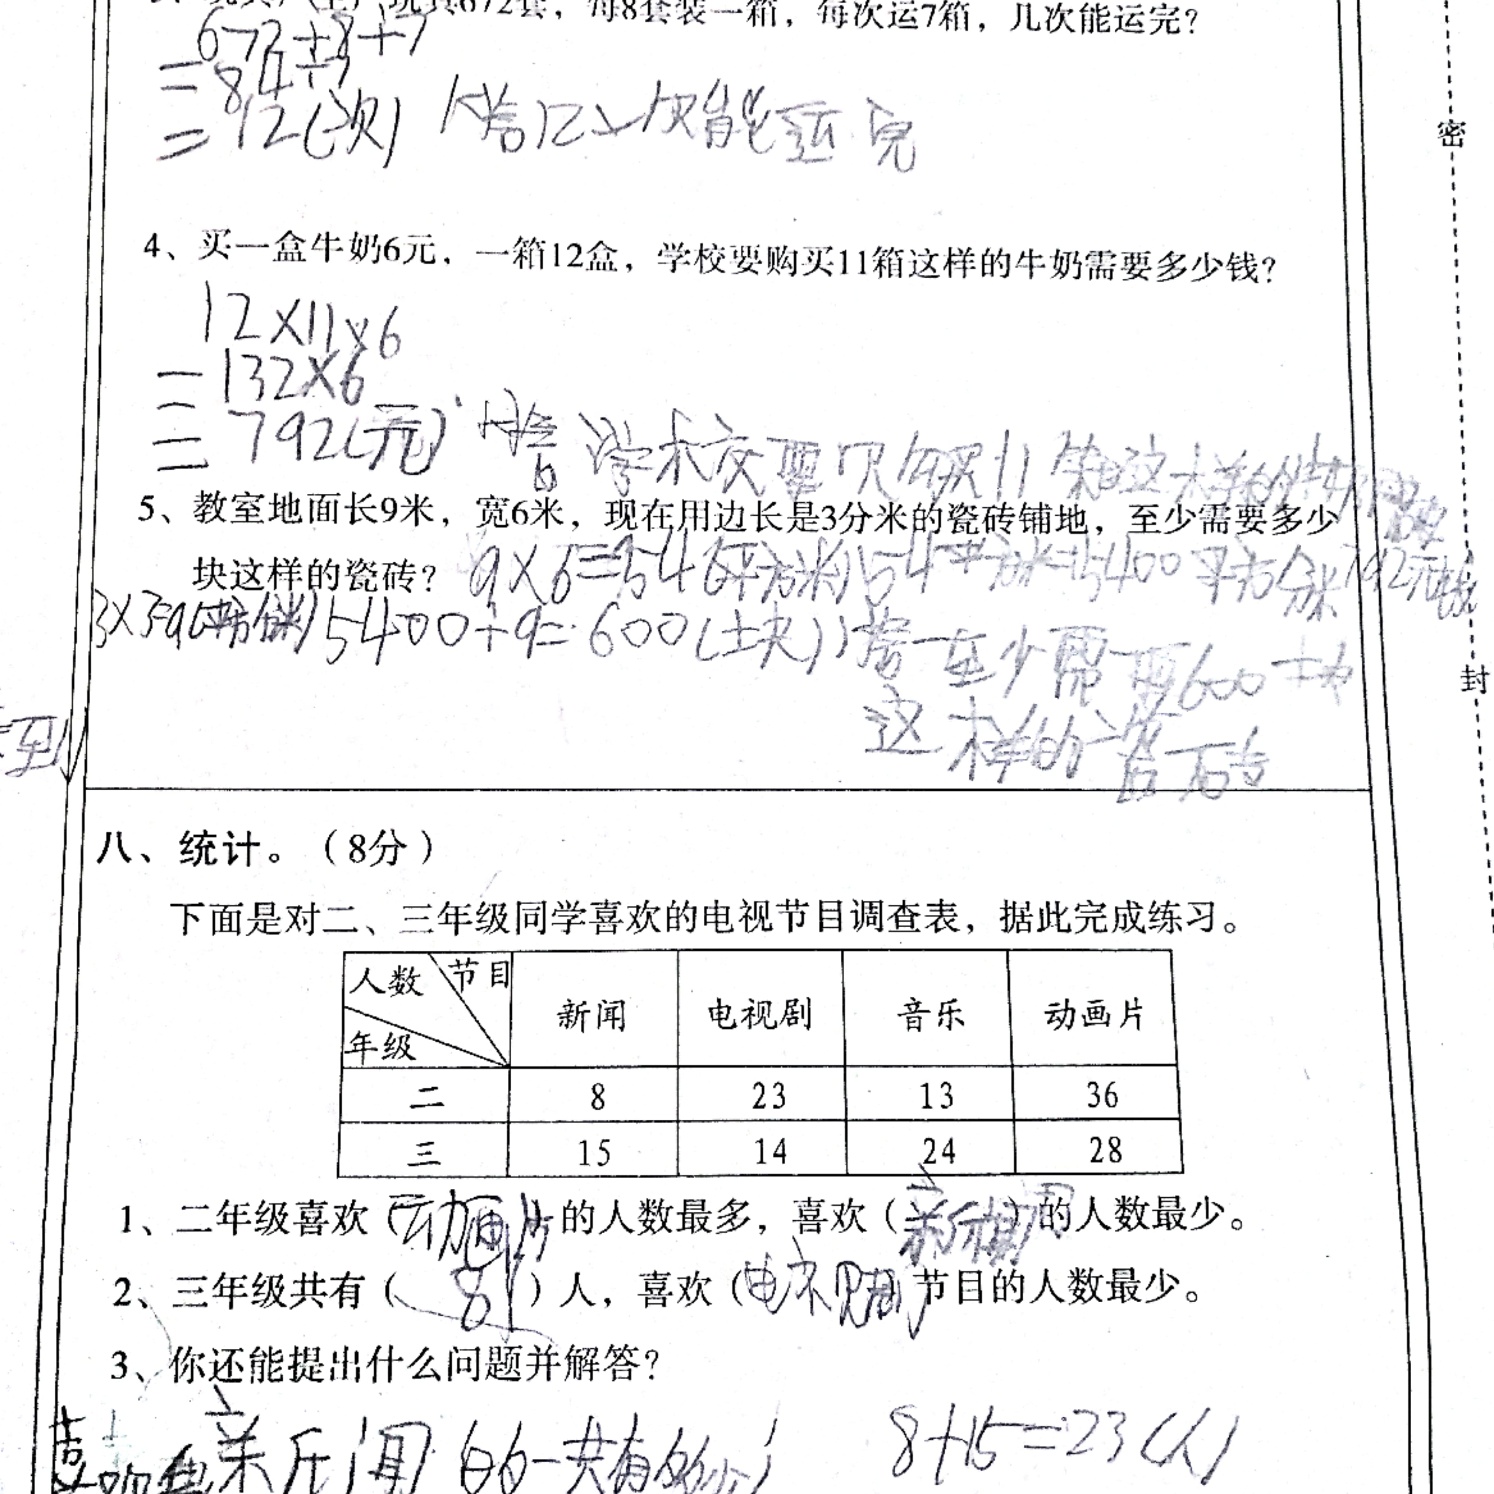 玩具672套，每8套装一箱，每次运7箱，几次能运完？
672÷8÷7
=84÷7
=12(次) 答12次能运完
密
4、买一盒牛奶6元，一箱12盒，学校要购买11箱这样的牛奶需要多少钱？
12×11×6
=132×6
=792(元) 答学校要购买11箱这样的牛奶需要
792元钱
5、教室地面长9米，宽6米，现在用边长是3分米的瓷砖铺地，至少需要多少
块这样的瓷砖？ 9×6=54(平方米) 54平方米=5400平方分米
3×3=9(平方分米) 5400÷9=600(块) 答至少需要600块
这样的瓷砖
封
八、统计。（8分）
下面是对二、三年级同学喜欢的电视节目调查表，据此完成练习。
人数 节目 年级 新闻 电视剧 音乐 动画片
二 8 23 13 36
三 15 14 24 28
1、二年级喜欢（动画片）的人数最多，喜欢（新闻）的人数最少。
2、三年级共有（81）人，喜欢（电视剧）节目的人数最少。
3、你还能提出什么问题并解答？
喜欢新闻的一共有多少人 8+15=23(人)